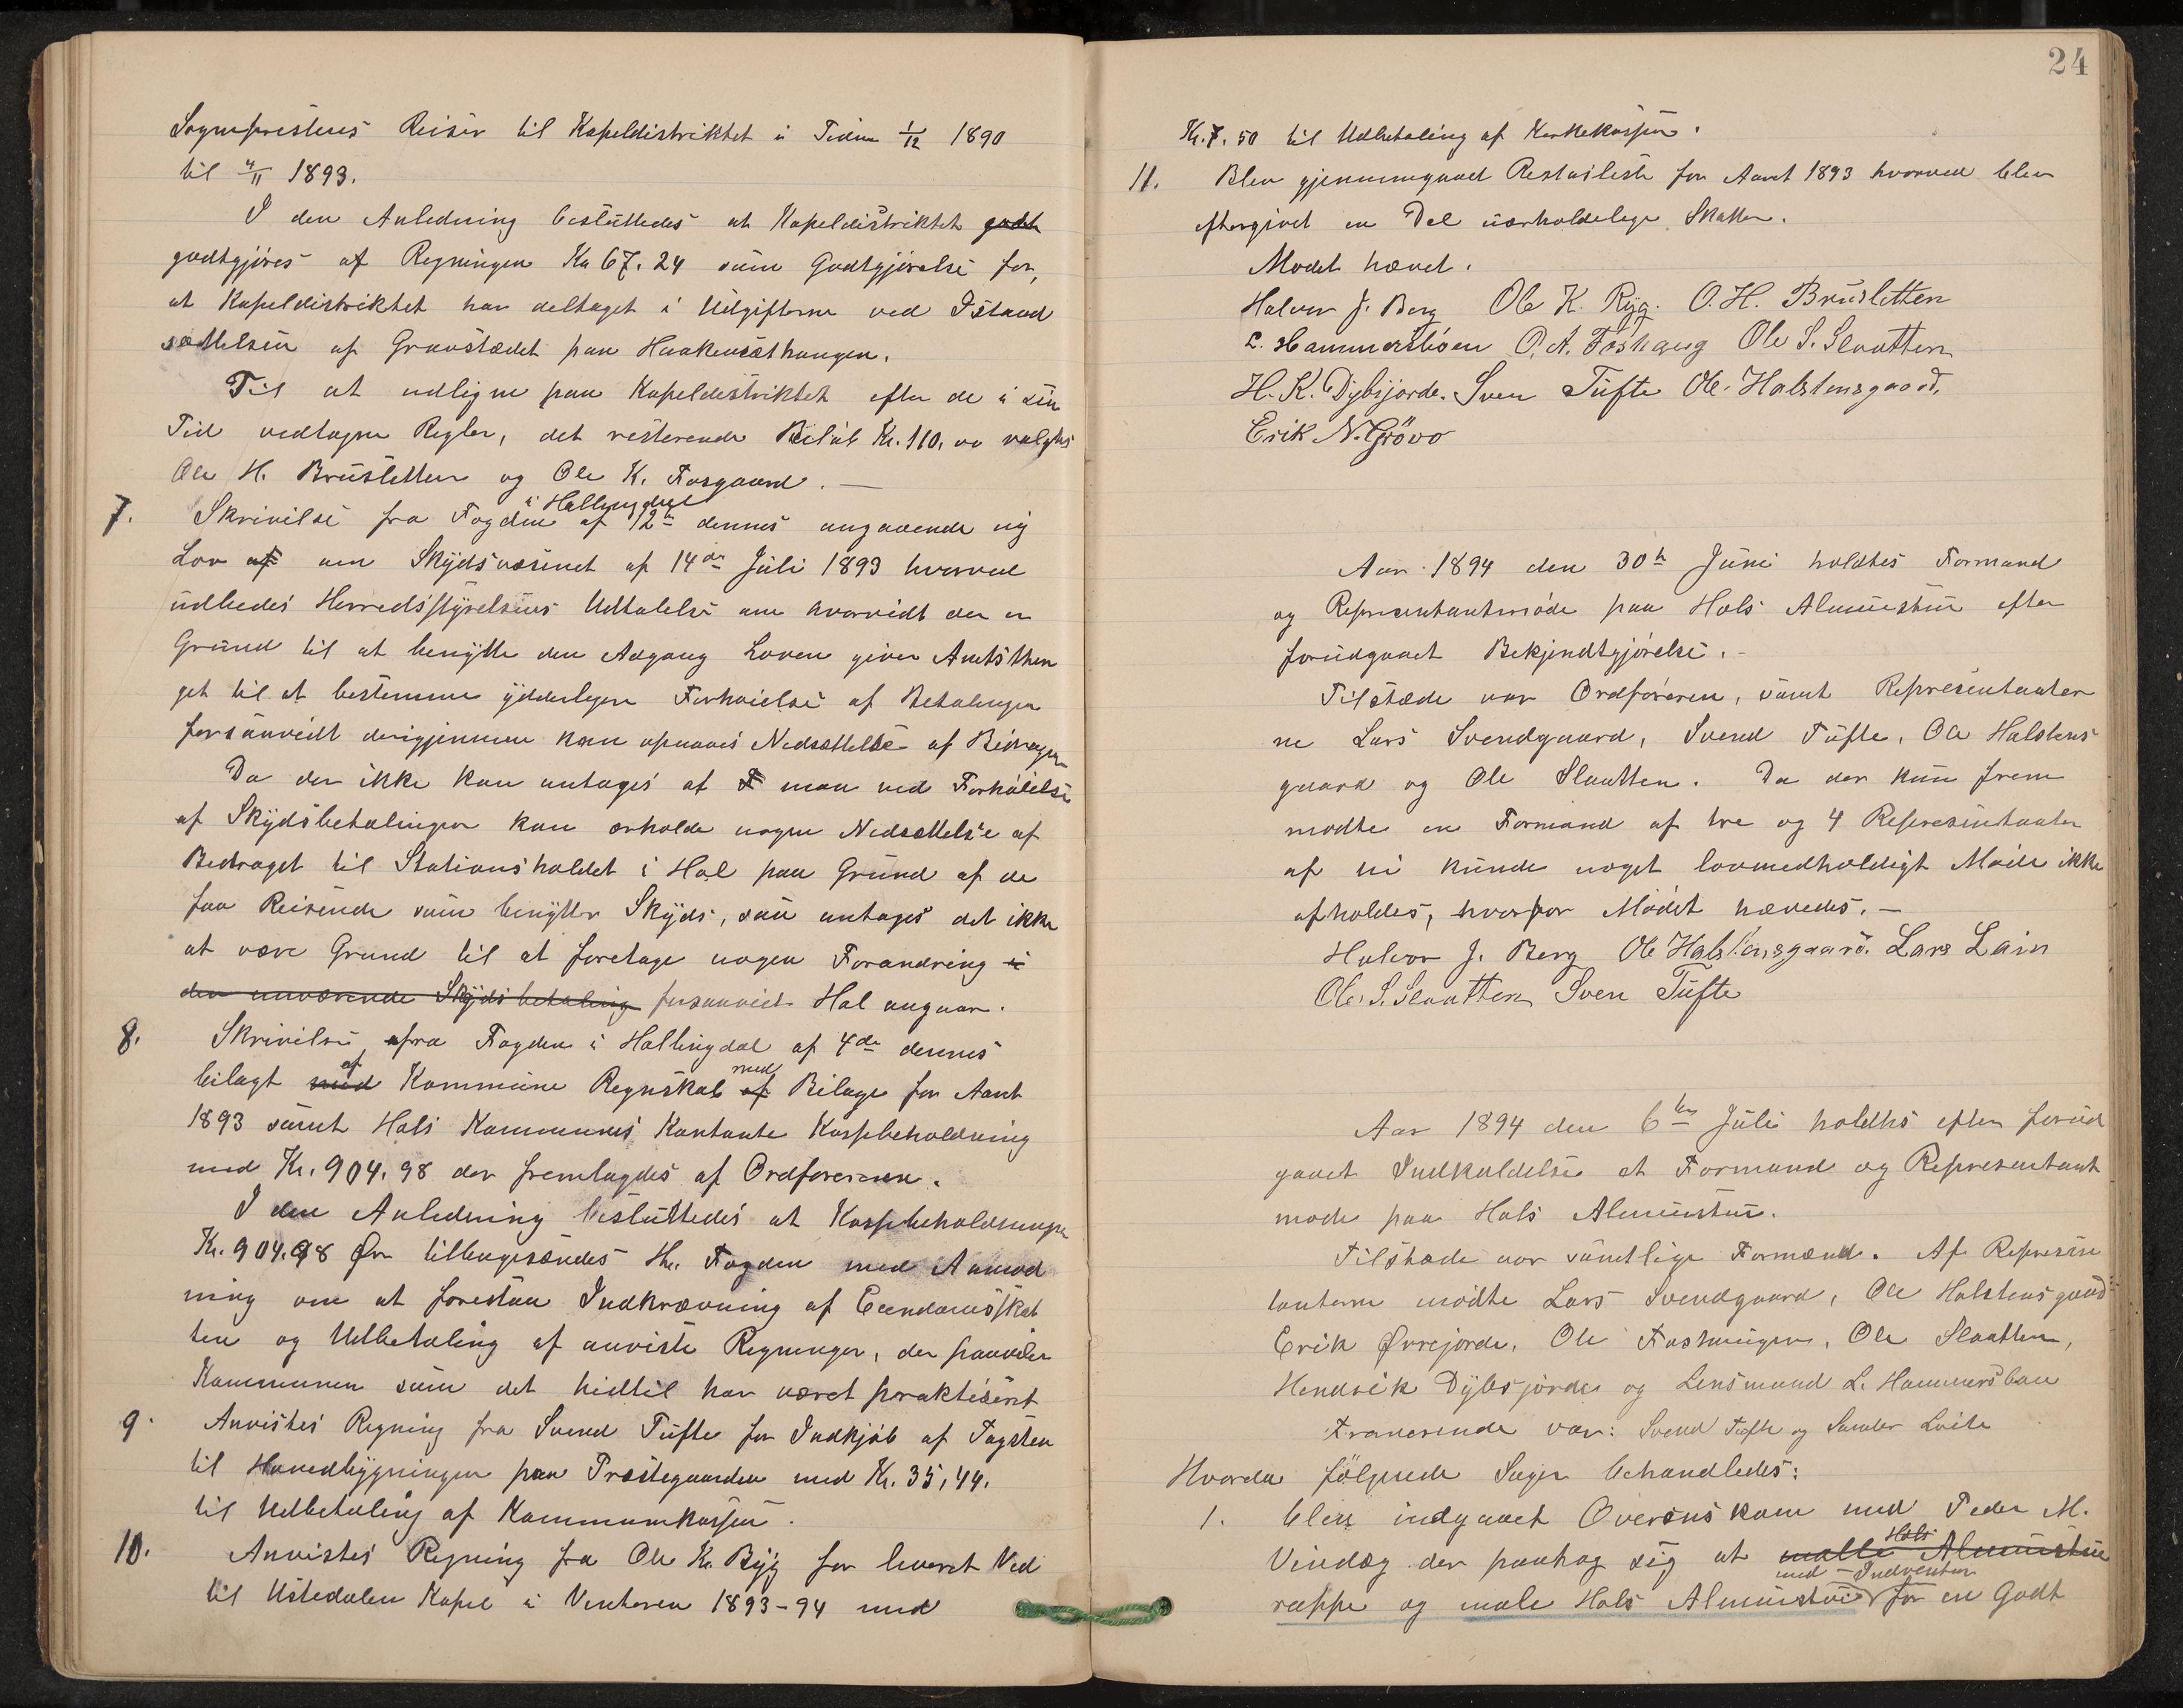 Sogneprestens Reiser til Kapeldistriktet i Tiden 1/12 1890
til 4/11 1893.
I den Anledning besluttedes at Kapeldistriktet godt
godtgjöres af Regningen Kr 67.24 som Godtgjörelse for,
at Kapeldistriktet har deltaget i Udgifterne ved Istand
sættelsen af Gravstædet paa Haakensæthaugen.
Til at udligne paa Kapeldistriktet efter de i sin
Tid vedtagne Regler, det resterende Belöb Kr. 110,00 valgtes
Ole H. Brusletten og Ole K. Fosgaard. —
7. Skrivelse fra Fogden i Hallingdal af 12te dennes angaaende ny
Lov af om Skydsvæsenet af 14de Juli 1893 hvorved
udbedes Herredsstyrelsens Udtalelse om hvorvidt der er
Grund til at benytte den Adgang Loven giver Amtsthin
get til at bestemme ydderligere Forhöielse af Betalingen
forsaavidt derigjennem kan opnaaes Nedsættelse af Bidragen
Da der ikke kan antages at F man ved Forhöielse
af Skydsbetalingen kan erholde nogen Nedsættelse af
Bidraget til Stationsholdet i Hol paa Grund af de
faa Reisende som benytter Skyds, saa antages det ikke
at være Grund til at foretage nogen Forandring i
den nuværende Skydsbetaling forsaavidt Hol angaar.
8. Skrivelse fra Fogden i Hallingdal af 4de dennes
bilagt med af Kommune Regnskab af med Bilage for Aaret
1893 samt Hols Kommunes Kontante Kassebeholdning
med Kr. 904.98 der fremlagdes af Ordföreren.
I den Anledning besluttedes at Kassebeholdningen
Kr. 904.98 Öre tilbagesendes Hr. Fogden med Anmod
ning om at forestaa Indkrævning af Eiendomsskat
ten og Udbetaling af anviste Regninger, der paahviler
Kommunen som det hidtil har været praktiseret
9. Anvistes Regning fra Svend Tufte for Indkjöb af Tagsten
til Hovedbygningen paa Præstegaarden med Kr. 35,44.
til Udbetaling af Kommunekassen.
10. Anvistes Regning fra Ole K. Ryg for leveret Ved
til Ustedalen Kapel i Vinteren 1893-94 med
24
Kr. 7.50 til Udbetaling af Kirkekassen.
11. Blev gjennemgaaet Restanseliste for Aaret 1893 hvorved blev
eftergivet en Del uerholdelige Skatter.
Mödet hævet.
Halvor J. Berg Ole K. Ryg. O. H. Brusletten
L. Hammersböen O. A. Foshaug Ole S. Slaatten
H. K. Dybsjorde. Sven Tufte Ole Halstensgaard,
Erik N. Grövo
Aar 1894 den 30te Juni holdtes Formand
og Representantmöde paa Hols Almuestue efter
forudgaaet Bekjendtgjörelse. -
Tilstæde var Ordföreren, samt Representanter
ne Lars Svendgaard, Svend Tufte, Ole Halstens
gaard og Ole Slaatten. Da der kun frem
mödte en Formand af tre og 4 Representanter
af ni kunde noget lovmedholdigt Möde ikke
afholdes, hvorfor Mödet hævedes. —
Halvor J. Berg Ole Halstensgaard. Lars Larsen
Ole S. Slaatten Sven Tufte
Aar 1894 den 6te Juli holdtes efter forud
gaaet Indkaldelse et Formand og Representant
möde paa Hols Almuestue.
Tilstæde var samtlige Formænd. Af Represen
tanterne mödte Lars Svendgaard, Ole Halstensgaard
Erik Övrejorde, Ole Foshaugen, Ole Slaatten,
Hendrik Dybsjorde og Lensmand L. Hammersböen
Fraværende var: Svend Tufte og Sander Loite
Hvorda fölgende Sager behandledes:
1. blev indgaaet Overenskom med Peder M.
Vindeg der paatog sig at malle Hols Almuestue
rappe og male Hols Almuestue med Indventar for en Godt